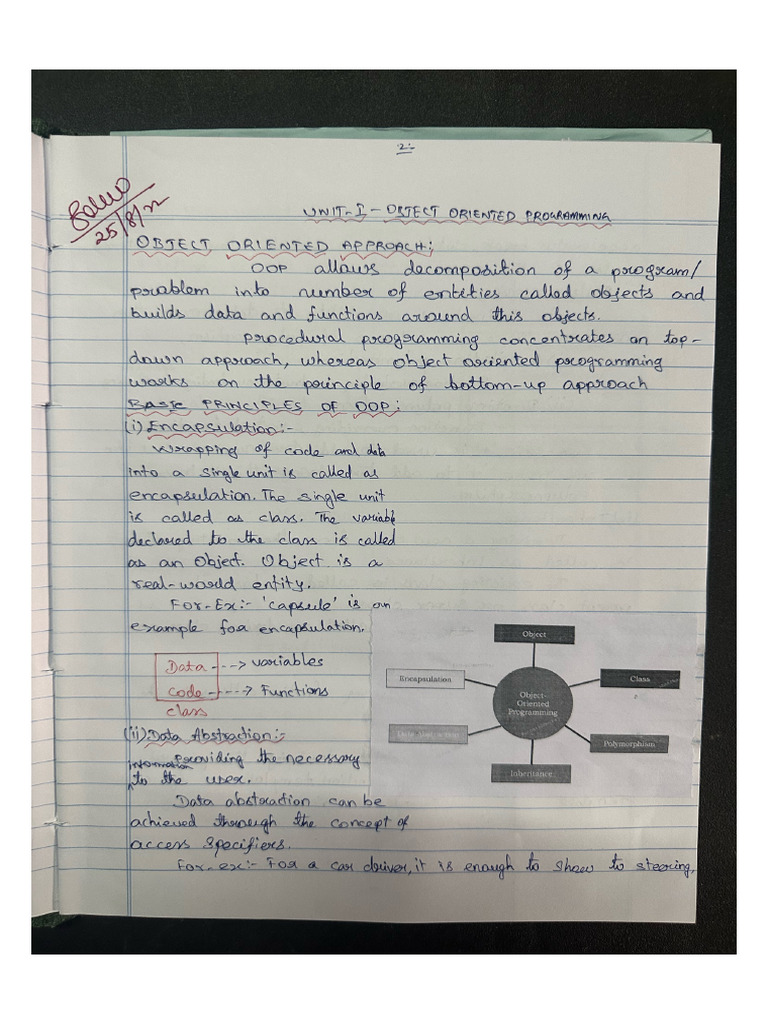 2:-
25/8/22
UNIT-I - OBJECT ORIENTED PROGRAMMING
OBJECT ORIENTED APPROACH:
OOP allows decomposition of a program/
problem into number of entities called objects and
builds data and functions around this objects.
procedural programming concentrates on top-
down approach, whereas object oriented programming
works on the principle of bottom-up approach
BASIC PRINCIPLES OF OOP:
(i) Encapsulation:-
Wrapping of code and data
into a single unit is called as
encapsulation. The single unit
is called as class. The variable
declared to the class is called
as an object. Object is a
real-world entity.
For-Ex:- 'capsule' is an
example for encapsulation.
Data ---> variables
code ---> Functions
class
Object
Encapsulation
Class
Object-
Oriented
Programming
Data Abstraction
Polymorphism
Inheritance
(ii) Data Abstraction:-
Providing the necessary
information
to the user.
Data abstraction can be
achieved through the concept of
access specifiers.
For-ex:- For a car driver, it is enough to show to steering,